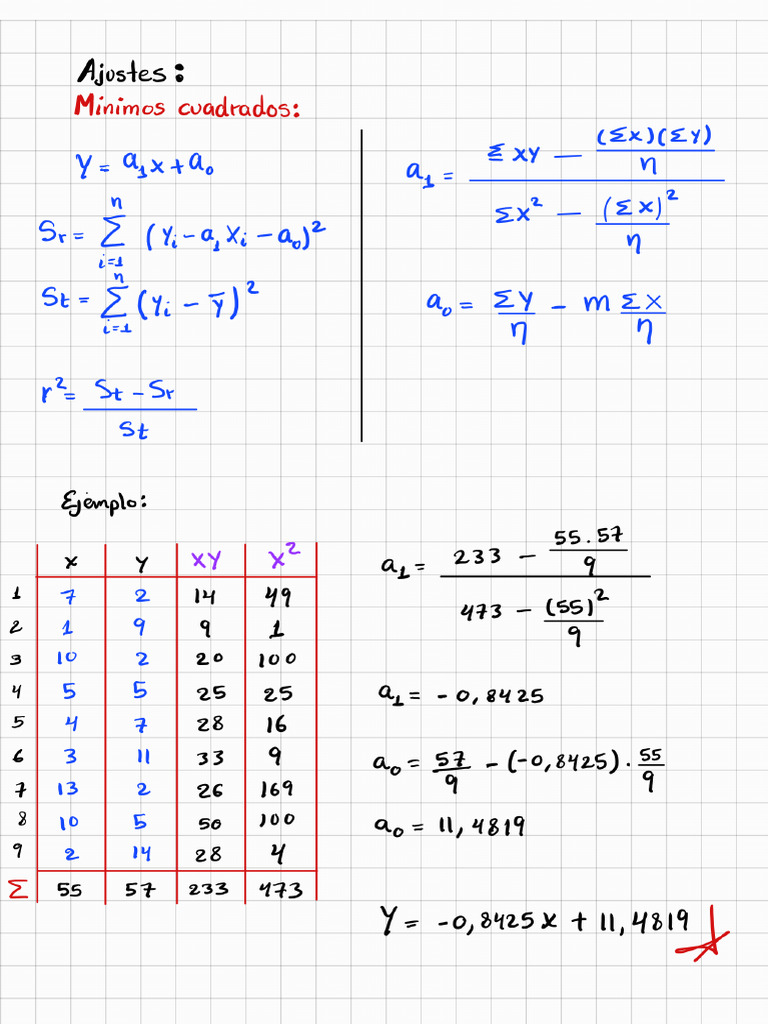 Ajustes:
Mínimos cuadrados:
y = a₁x + a₀
Sr = Σ (i=1, n) (yi - a₁xi - a₀)²
St = Σ (i=1, n) (yi - ȳ)²
r² = (St - Sr) / St
a₁ = (Σxy - (Σx)(Σy)/n) / (Σx² - (Σx)²/n)
a₀ = Σy/n - m Σx/n
Ejemplo:
x y xy x²
1 7 2 14 49
2 1 9 9 1
3 10 2 20 100
4 5 5 25 25
5 4 7 28 16
6 3 11 33 9
7 13 2 26 169
8 10 5 50 100
9 2 14 28 4
Σ 55 57 233 473
a₁ = (233 - 55.57/9) / (473 - (55)²/9)
a₁ = -0,8425
a₀ = 57/9 - (-0,8425) · 55/9
a₀ = 11,4819
y = -0,8425x + 11,4819